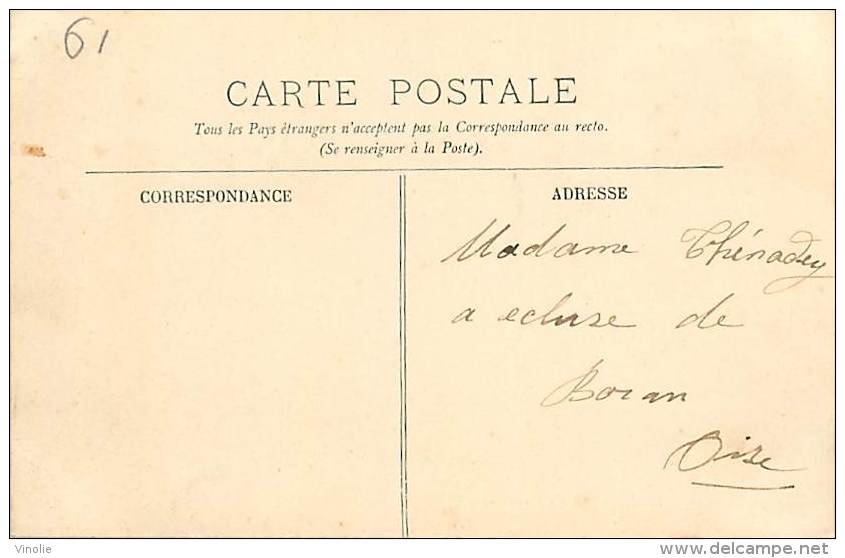 61
CARTE POSTALE
Tous les Pays étrangers n'acceptent pas la Correspondance au recto.
(Se renseigner à la Poste).
CORRESPONDANCE
ADRESSE
Madame Thénadey
a ecluse de
Boran
Oise
Vinolie
delcampe.net